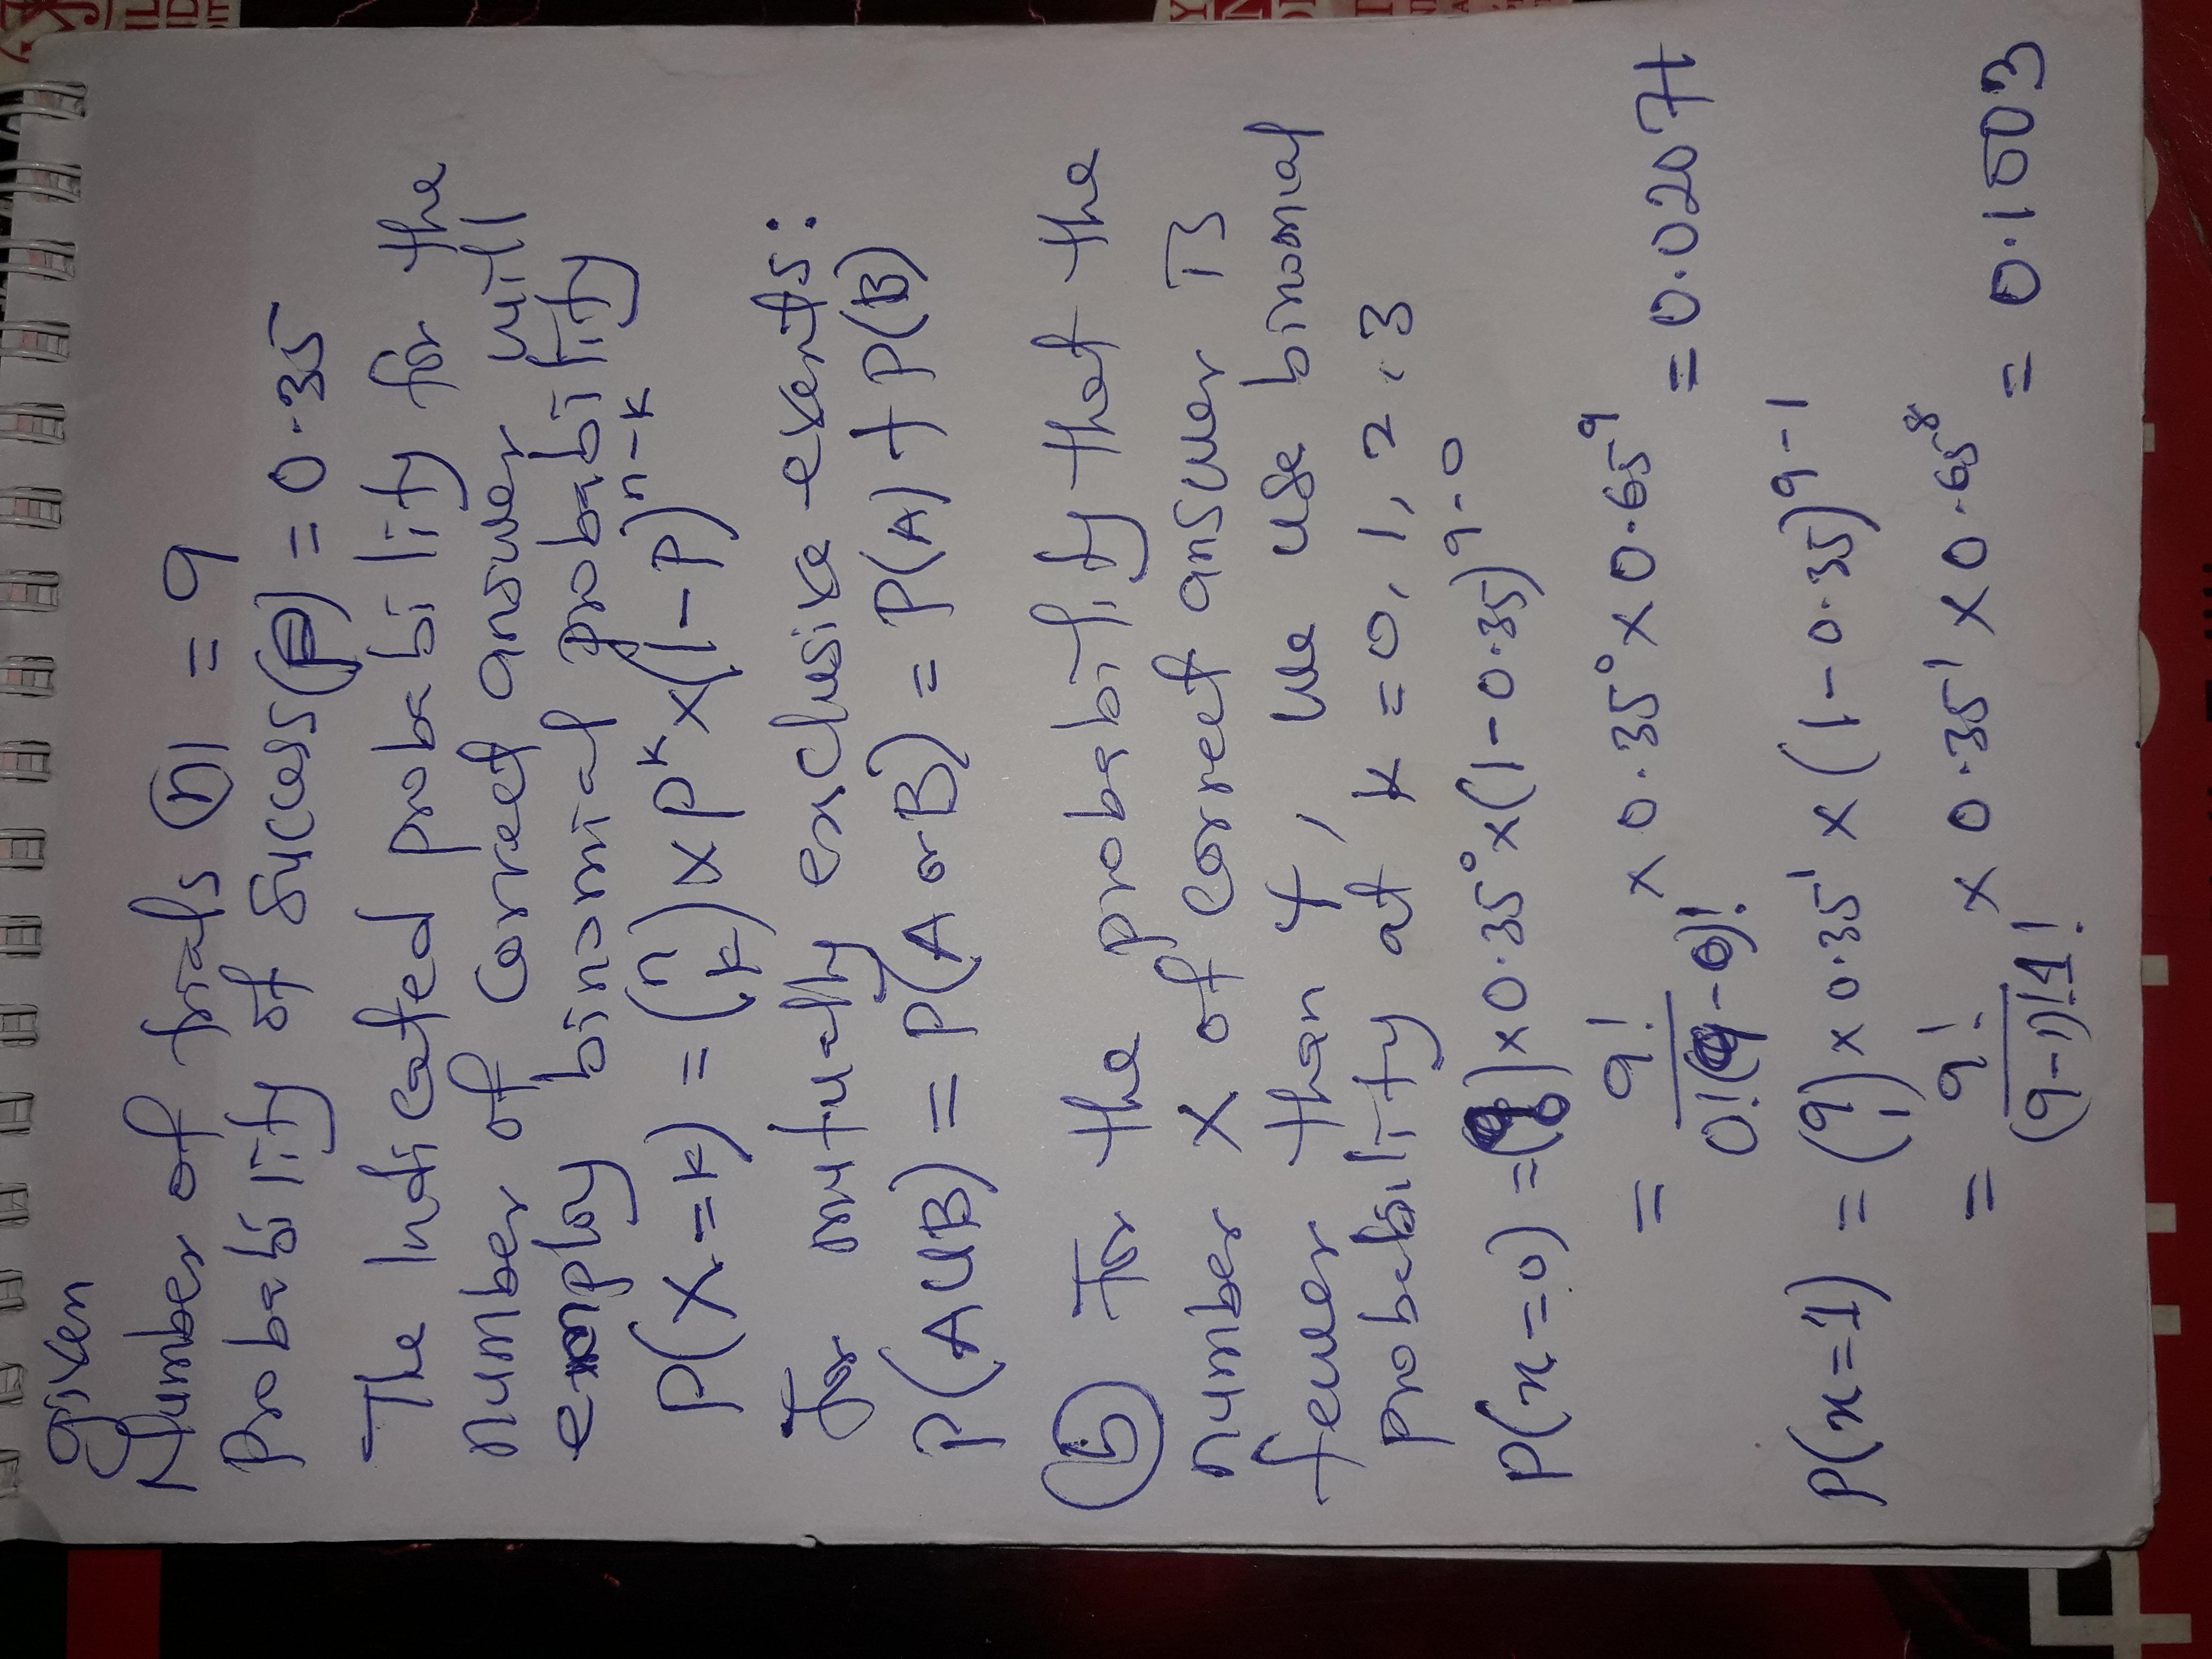 given
Number of trials (n) = 9
Probability of success (P) = 0.35
The Indicated probability for the
number of correct answer will
employ binomial probability
P(X=k) = (n k) x P^k x (1-P)^n-k
For mutually exclusive events:
P(AUB) = P(A or B) = P(A) + P(B)
(b) For the probability that the
number X of correct answer is
fewer than 4, we use binomial
probability at k = 0, 1, 2, 3
P(x=0) = (9 0) x 0.35^0 x (1-0.35)^9-0
= 9! / 0!(9-0)! x 0.35^0 x 0.65^9 = 0.0207
P(x=1) = (9 1) x 0.35^1 x (1-0.35)^9-1
= 9! / (9-1)!1! x 0.35^1 x 0.65^8 = 0.1003